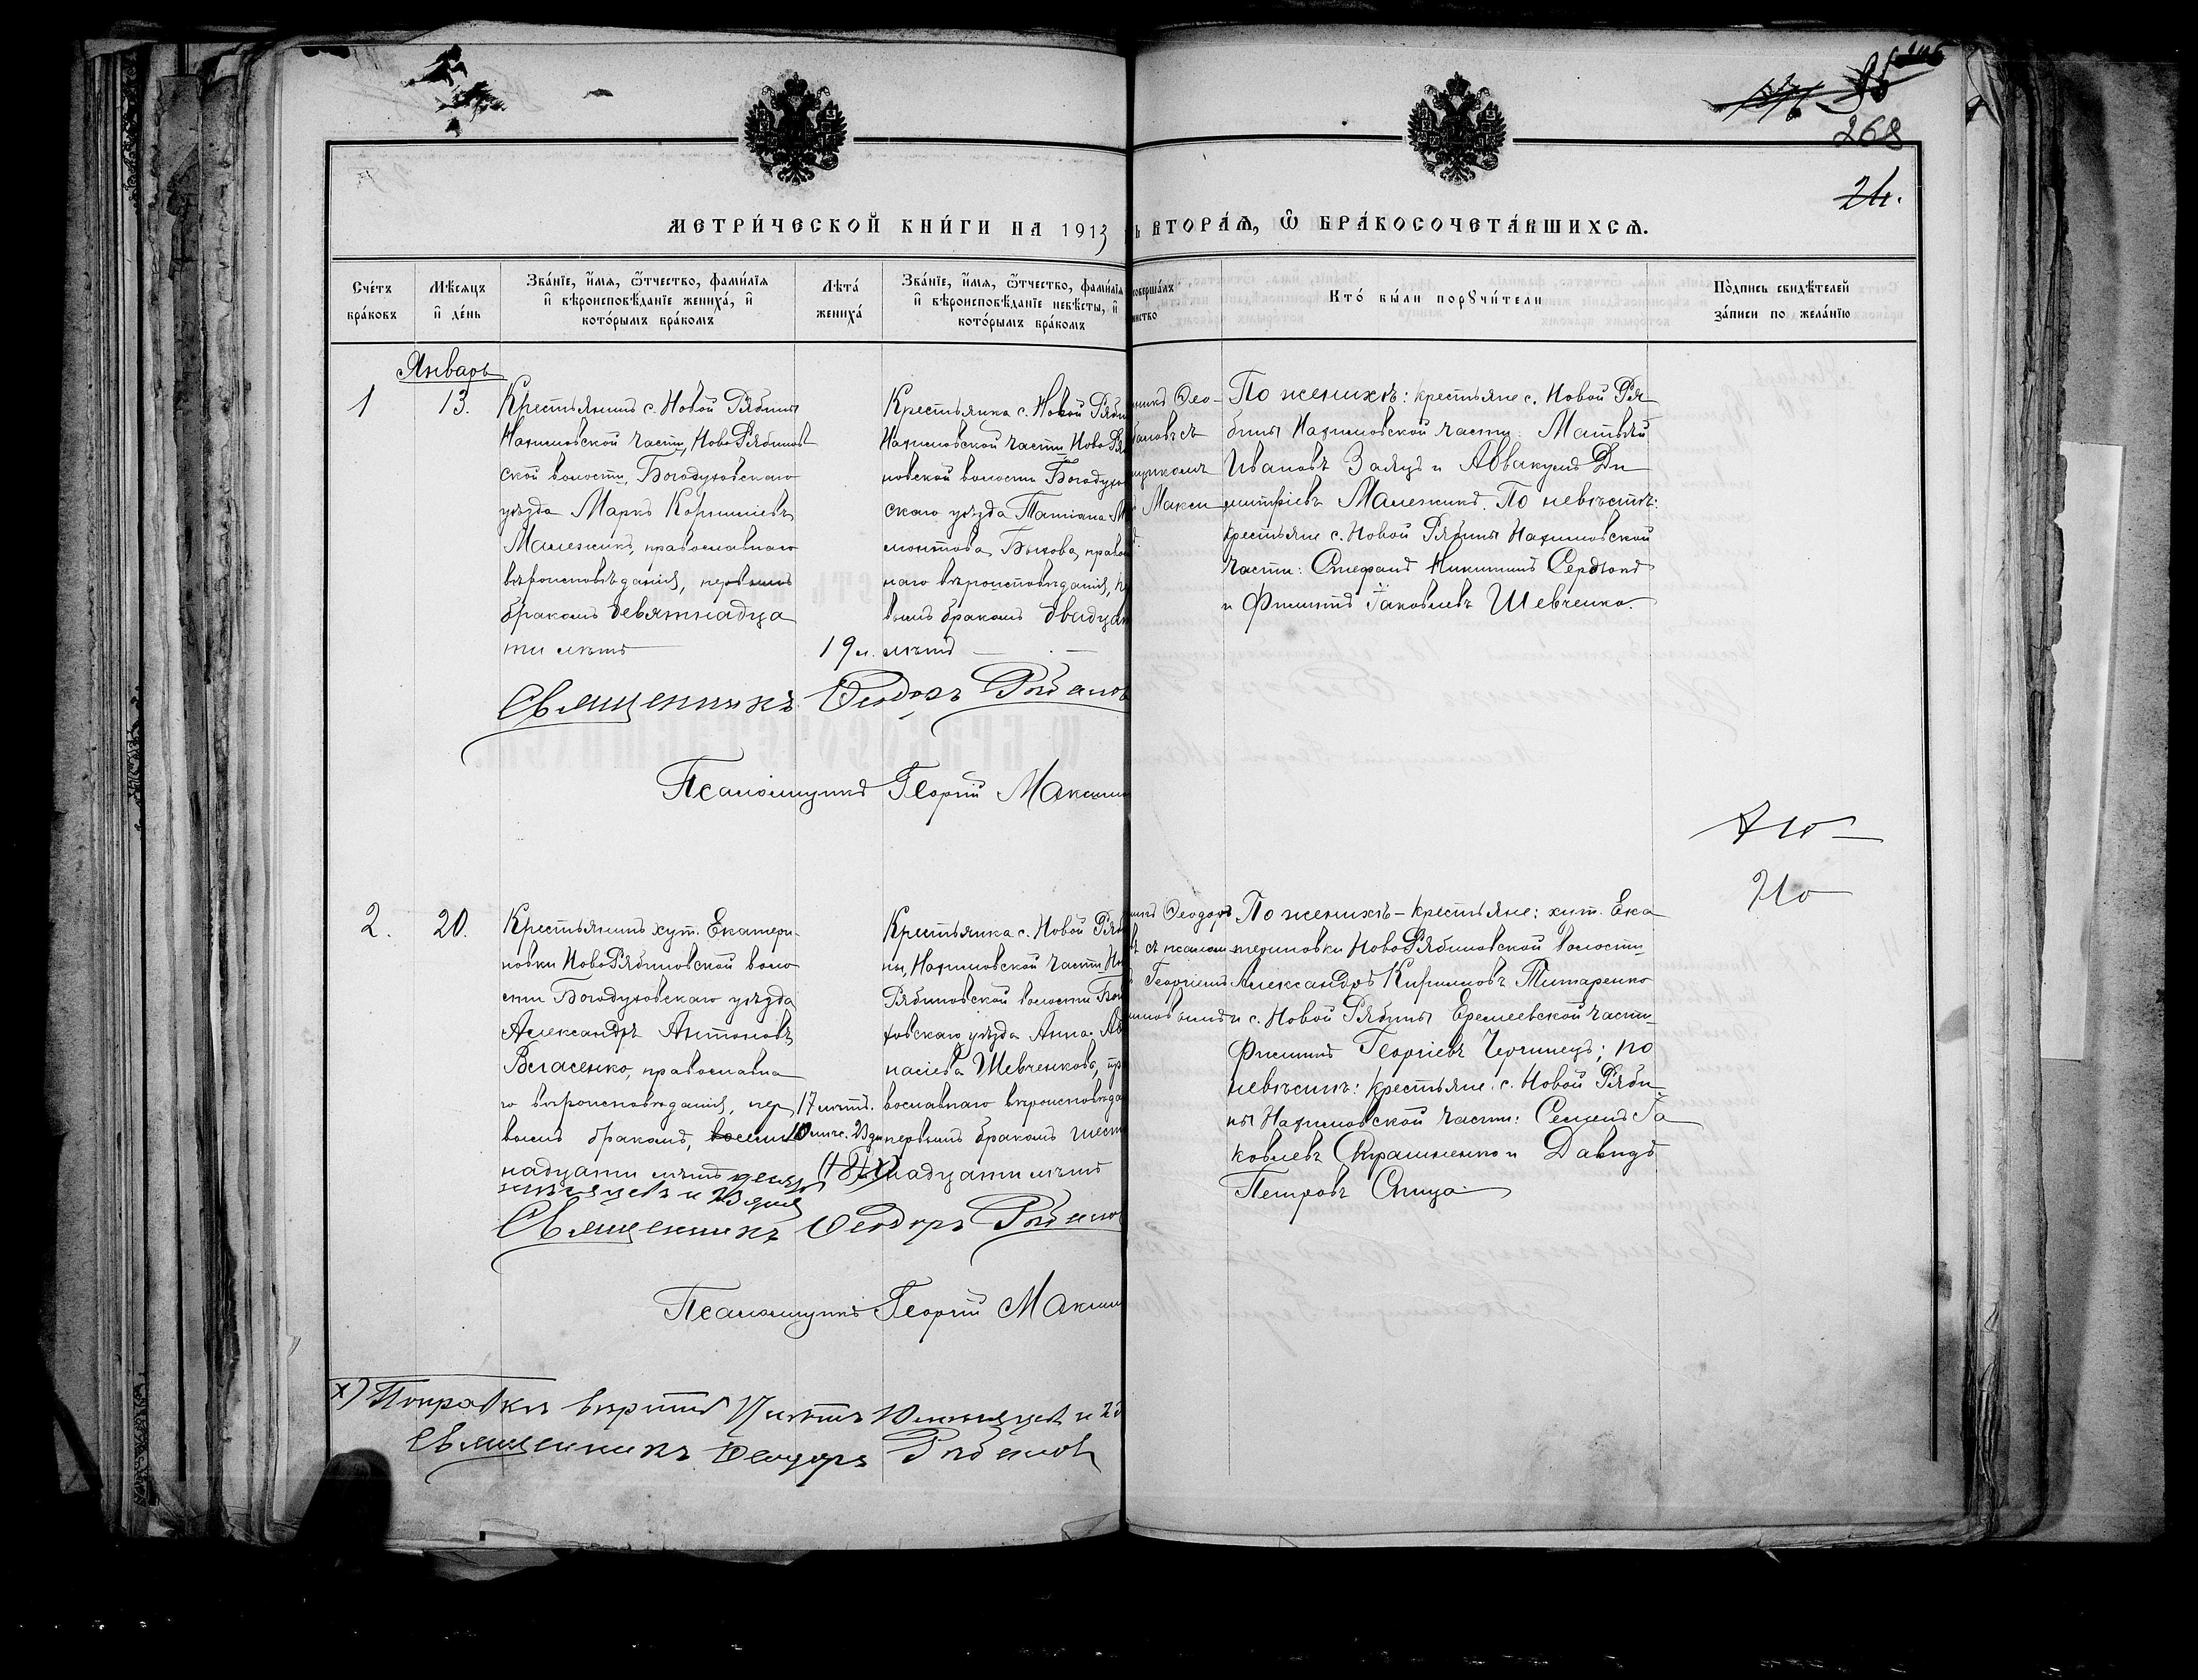 268
24.
МЕТРИ́ЧЕСКОЙ КНИ́ГИ НА 1913
Ъ ВТОРА́Ѧ, Ѽ БРА́КОСОЧЕТА́ВШИХСѦ.
Сче́тъ бра́ковъ
Мѣ́сяцъ и҆ де́нь
Зва́нїе, и҆́мя, ѻ҆́тчество, фами́лїя и҆ вѣроисповѣ́данїе жениха́, и҆ кото́рымъ бра́комъ
Лѣта́ жениха́
Зва́нїе, и҆́мя, ѻ҆́тчество, фами́лїя и҆ вѣроисповѣ́данїе невѣ́сты, и҆ кото́рымъ бра́комъ
Кто́ бы́ли порꙋчи́тели
По́дпись свидѣ́телей за́писи по жела́нїю
Январь
1
13.
Крестьянинъ с. Новой Рябины
Нахимовской части, НовоРябинов
ской волости, Богодуховскаго
уѣзда Маркъ Корниліевъ
Малежикъ, православнаго
вѣроисповѣданія, первымъ
бракомъ девятнадца
ти лѣтъ
19 л.
Крестьянка с. Новой Ряби
Нахимовской части НовоРя
новской волости Богодухо
скаго уѣзда Татіана М
монтова Быкова, право
наго вѣроисповѣданія, п
вымъ бракомъ двадца
лѣтъ
никъ Ѳео-
бановъ съ
щикомъ
Макси
По женихѣ: крестьяне с. Новой Ря
бины Нахимовской части: Матвѣй
Ивановъ Заяцъ и Аввакумъ Ди
митріевъ Малежикъ. По невѣстѣ:
крестьяне с. Новой Рябины Нахимовской
части: Стефанъ Никитинъ Сердюкъ
и Филиппъ Іаковлевъ Шевченко.
Священникъ Ѳеодоръ
Псаломщикъ Георгій Максим
2.
20.
Крестьянинъ хут. Екатери-
новки НовоРябиновской воло
сти Богодуховскаго уѣзда
Александръ Антоновъ
Власенко, православна
го вѣроисповѣданія, пер
вымъ бракомъ, восемь
надцати лѣтъ
мѣсяцевъ и 23 дня
17 лѣтъ.
10 мѣс. 23 дн
Крестьянка с. Новой Ряб
ны, Нахимовской части Но
Рябиновской волости Бог
ховскаго уѣзда Анна Аѳ
насіева Шевченкова, пр
вославнаго вѣроисповѣда
первымъ бракомъ шест
надцати лѣтъ
Ѳеодоръ
съ псалом
Георгіемъ
По женихѣ – крестьяне: хут. Ека
териновки НовоРябиновской волости
Александръ Кирилловъ Титаренко
и с. Новой Рябины Еремеевской части
Филиппъ Георгіевъ Черчинецъ; по
невѣстѣ: крестьяне с. Новой Ряби
ны Нахимовской части: Семенъ Іа
ковлевъ и Давидъ
Петровъ Спица
Священникъ Ѳеодоръ
Псаломщикъ Георгій Максим
х) Поправкѣ вѣрить 17 лѣтъ 10 мѣсяцевъ и 23
Священникъ Ѳеодоръ